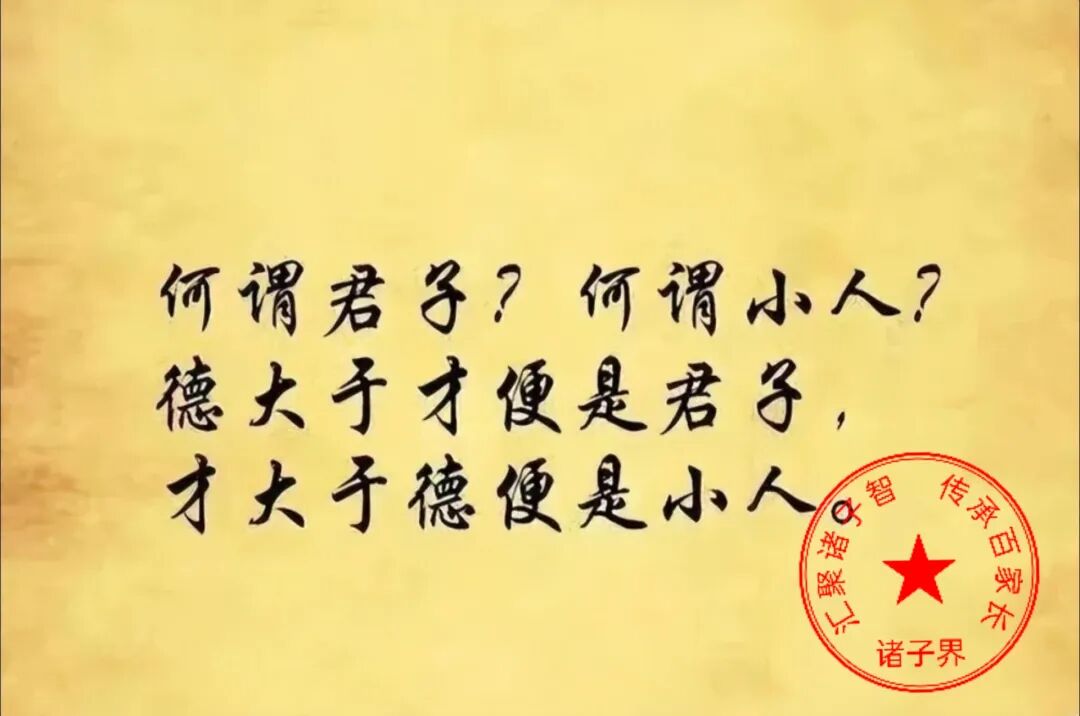 何谓君子？何谓小人？
德大于才便是君子，
才大于德便是小人。
汇聚诸子智 传承百家长
诸子界